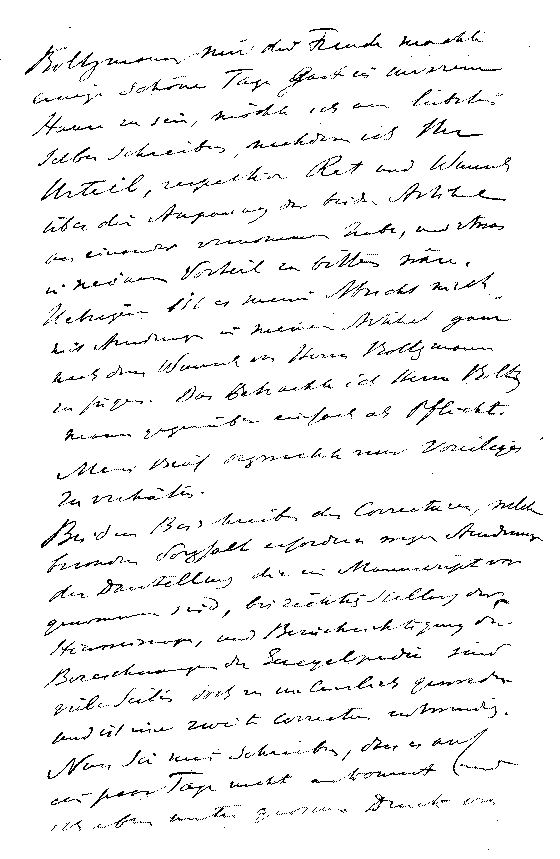 Boltzmann mir die Freude machte
einige schöne Tage Gast in unserem
Hause zu sein, möchte ich am liebsten
selber schreiben, nachdem ich Ihr
Urteil, respektive Rat und Wunsch
über die Anpassung der beiden Artikel
an einander vernommen habe, und etwas
in meinem Vorteil zu bitten wäre.
Uebrigens ist es meine Absicht mich
mit Aenderungen in meinem Artikel ganz
nach dem Wunsch von Herrn Boltzmann
zu fügen. Das betrachte ich Herrn Boltz
mann gegenüber einfach als Pflicht.
Mein Brief bezweckte nur Voreiliges
zu verhüten.
Bei dem Beschreiben der Correcturen, welche
besondere Sorgfalt erfordern wegen Aenderungen
der Darstellung die im Manuscript vor
genommen sind, berichtig Stellung der
Hinweisungen, und Berücksichtigung der
Bezeichnungen der Encyclopädie sind
viele Seiten doch zu undeutlich geworden
und ist eine zweite Correctur notwendig.
Nun Sie mir schreiben, dass es auf
ein paar Tage nicht ankommt (und
ich eben unter grossem Druck von